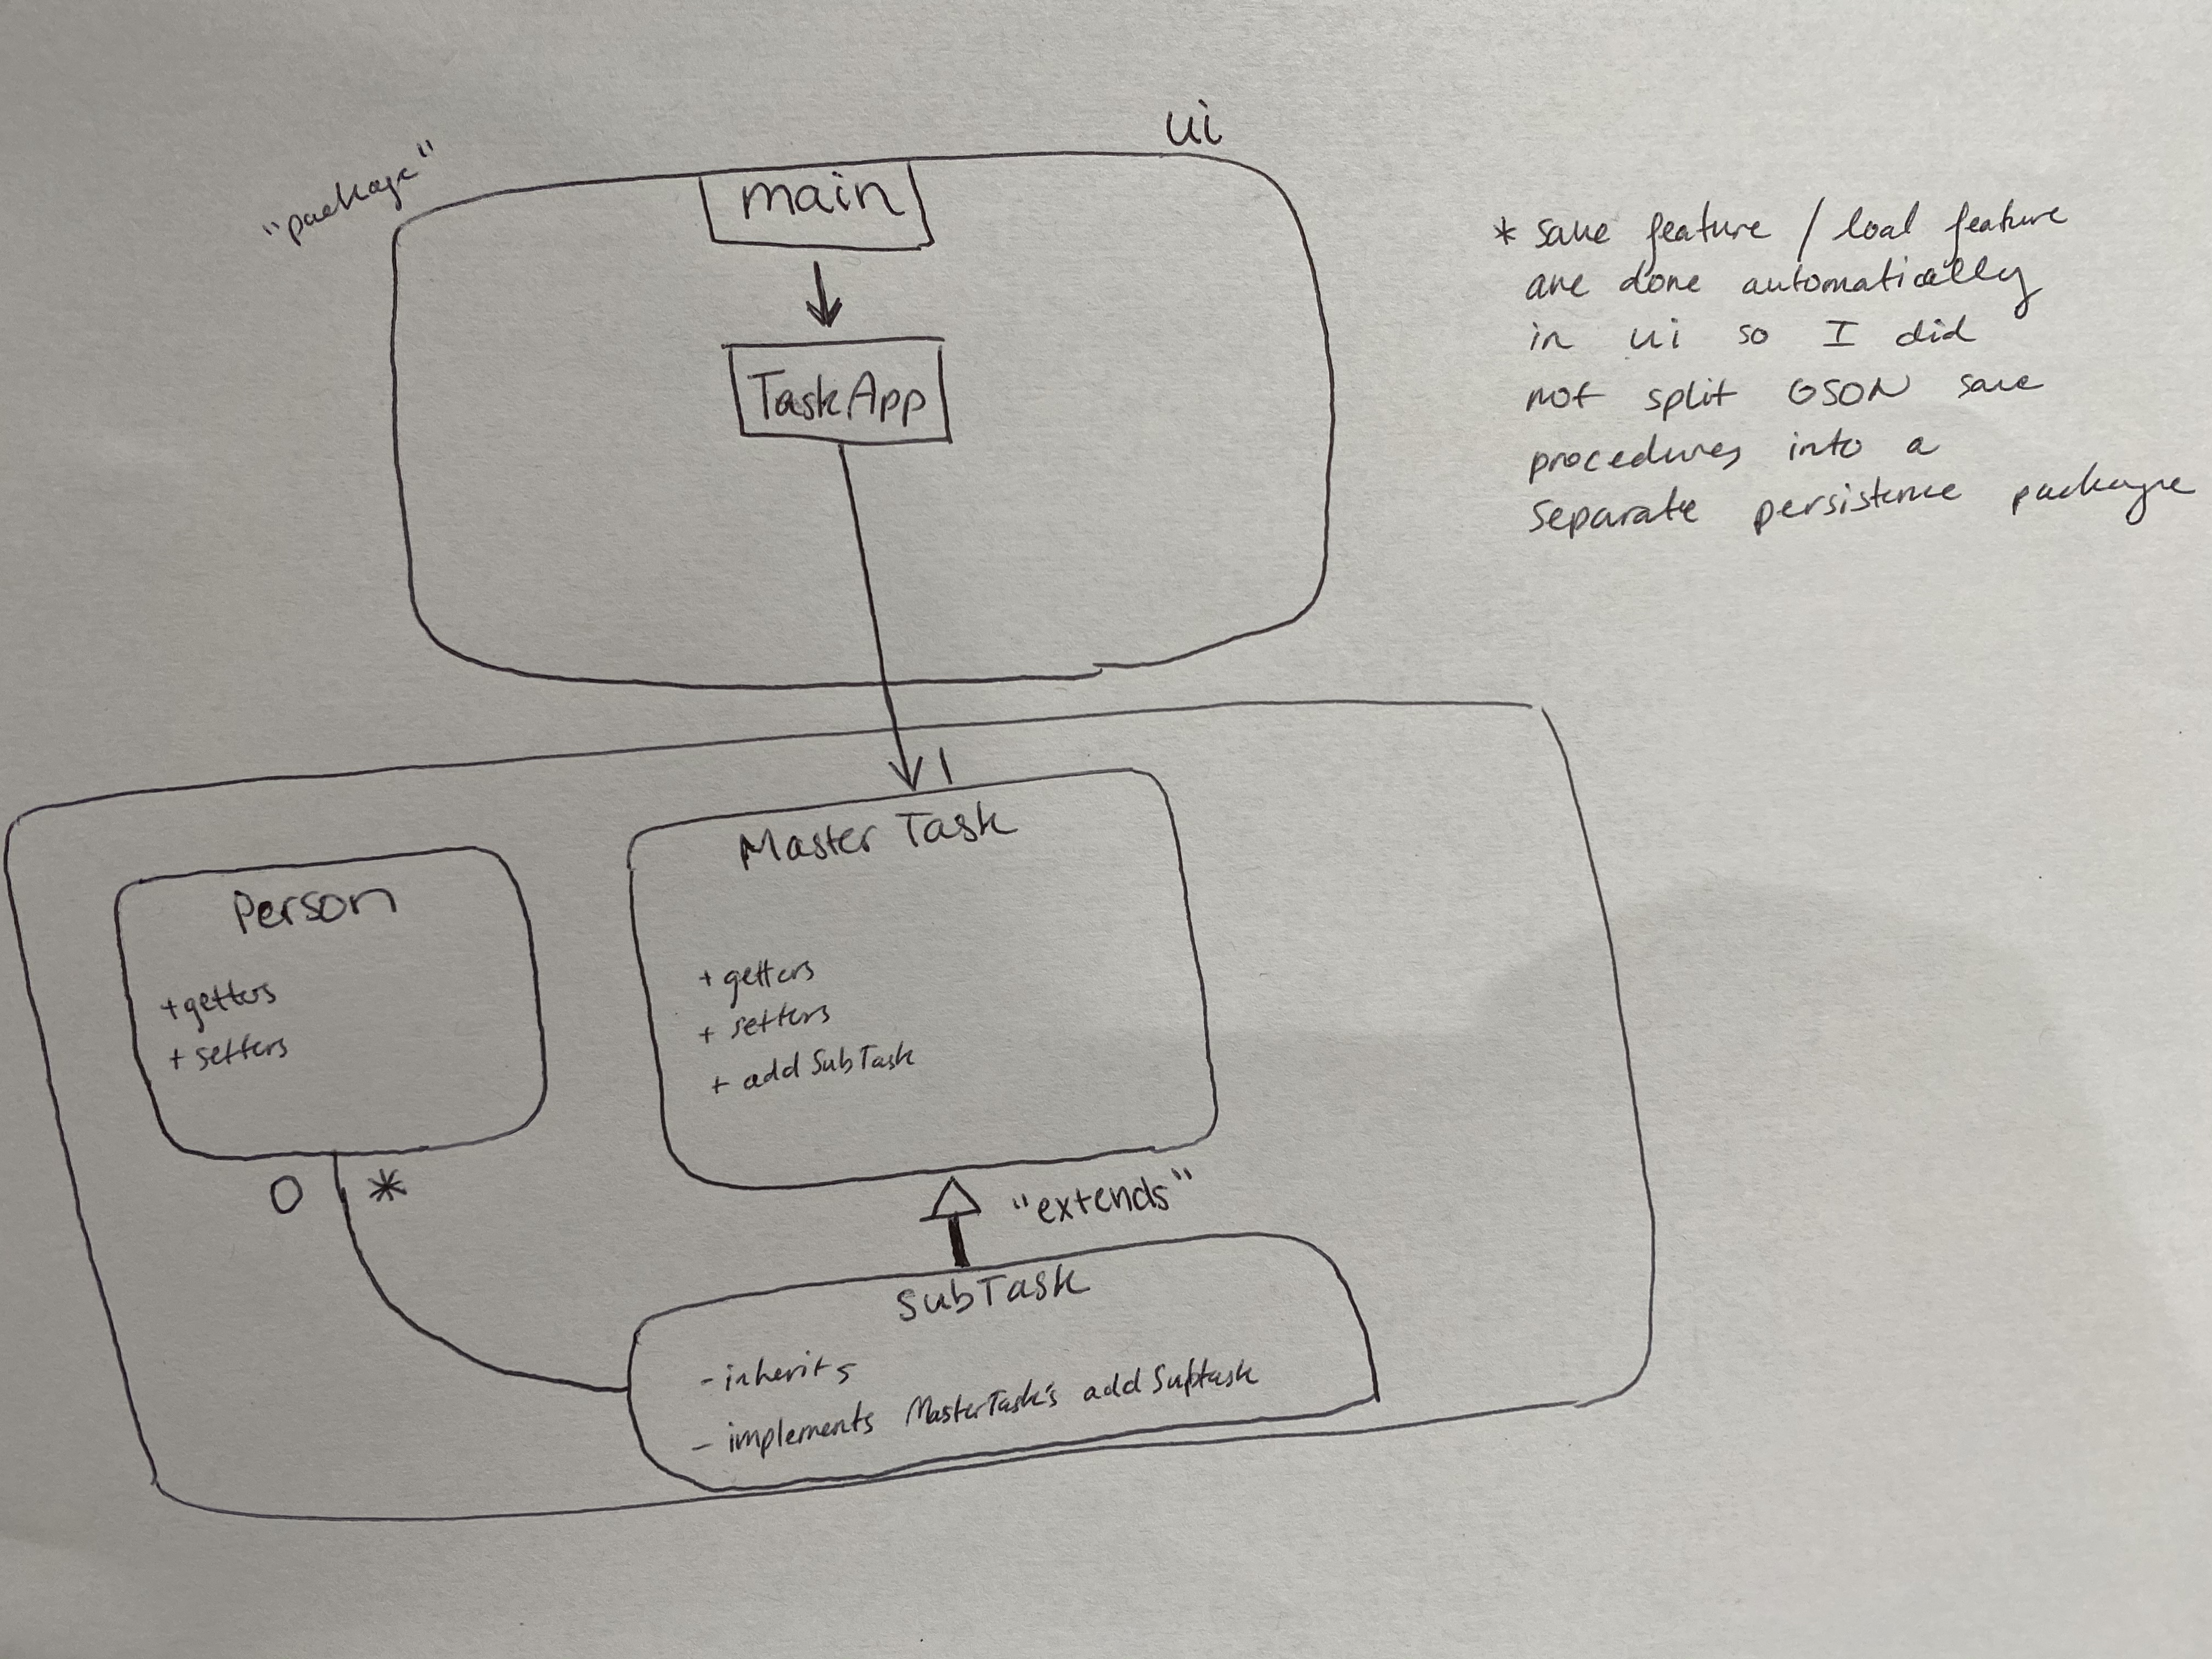 ui
"package"
main
TaskApp
* save feature / load feature
are done automatically
in ui so I did
not split GSON save
procedures into a
Separate persistence package
1
Master Task
+ getters
+ setters
+ add SubTask
Person
+getters
+ setters
0 *
"extends"
SubTask
- inherits
- implements MasterTask's add Subtask